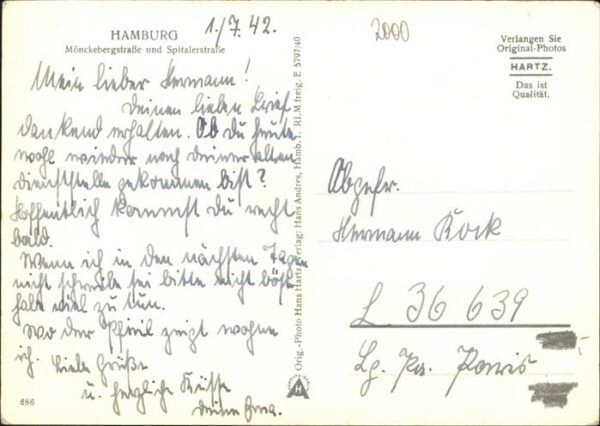 HAMBURG
Mönckebergstraße und Spitalerstraße
1./7. 42.
2000
Verlangen Sie
Original-Photos
HARTZ.
Das ist
Qualität.
Mein lieber Hermann!
Deinen lieben Brief
dankend erhalten. Ob du heute
wohl wieder nach deiner alten
Dienststelle gekommen bist?
Hoffentlich kommst du recht
bald.
Wenn ich in den nächsten Tagen
nicht schreibe sei bitte nicht böse
habe viel zu tun.
Wo der Pfeil zeigt wohne
ich. Liebe Grüße
u. herzliche Küsse
deine
Orig.-Photo Hans Hartz, Verlag: Hans Andres, Hamb. 1. RLM freig. E 5797/40
Obgefr.
Hermann
L 36 639
Lg. Pa. Paris
686